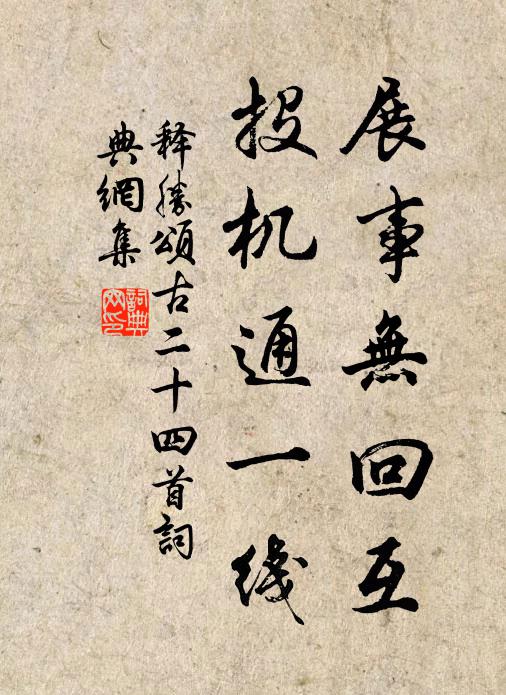 展事無回互
投机通一线
释勝頌古二十四首詞
典網集
詞典網印